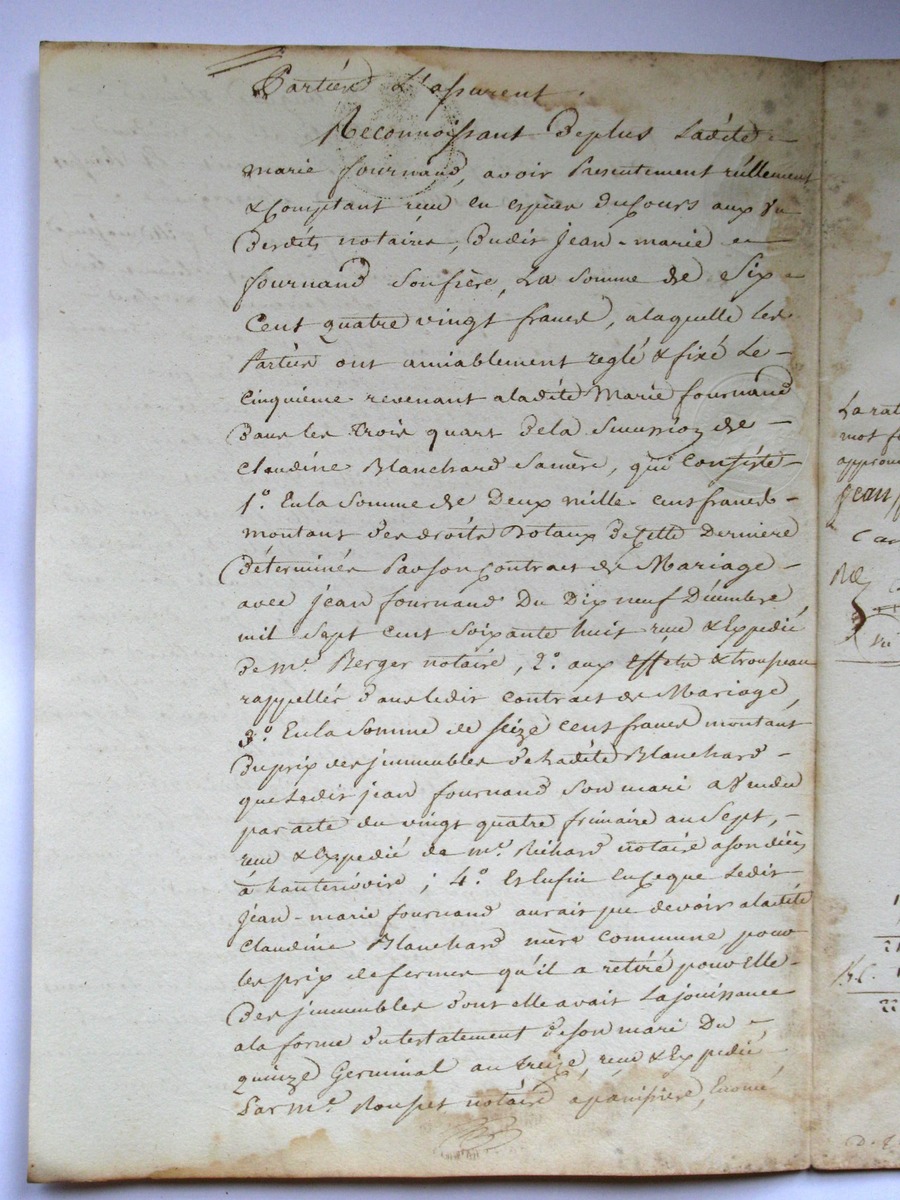 Parties L'assurent.
Reconnoissant deplus Ladite
marie fournand, avoir Présentement réellement
& Comptant reçu en espèces ducours aux vu
desdits notaires, dudit Jean-marie
fournand Sonfrère, La Somme de Six
Cent quatre vingt francs, alaquelle les
Parties ont amiablement reglé & fixé Le
Cinquième revenant aladite Marie fournand
dans les Trois quart dela Succession de
Claudine Blanchard Samère, qui Consiste
1° Enla Somme de Deux mille cent francs
montant des droits Dotaux decette Dernière
déterminés Parson Contract de Mariage
avec jean fournand Du Dix neuf Décembre
mil Sept cent Soixante huit reçu & Expedié
de m.e Berger notaire, 2° aux effets & trousseau
rappellés dansledit contract de Mariage,
3° Enla Somme de Seize Cent francs montant
duprix des jmmeubles deladite Blanchard
queledit jean fournand Son mari a Vendu
par acte du vingt quatre frimaire an Sept,
reçu & Expedié de m.e Richard notaire
à hauterivoire; 4° Et Enfin En ce que Ledit
Jean-marie fournand aurait pu devoir aladite
Claudine Blanchard mère Commune pour
les prix de fermes qu'il a retiré pour Elle
des jmmeubles dont elle avait La jouissance
ala forme dutestatement deson mari Du
quinze Germinal an treize, reçu & Expedié
Par m.e notaire apanissière,
La rat
mot f
approu
jean